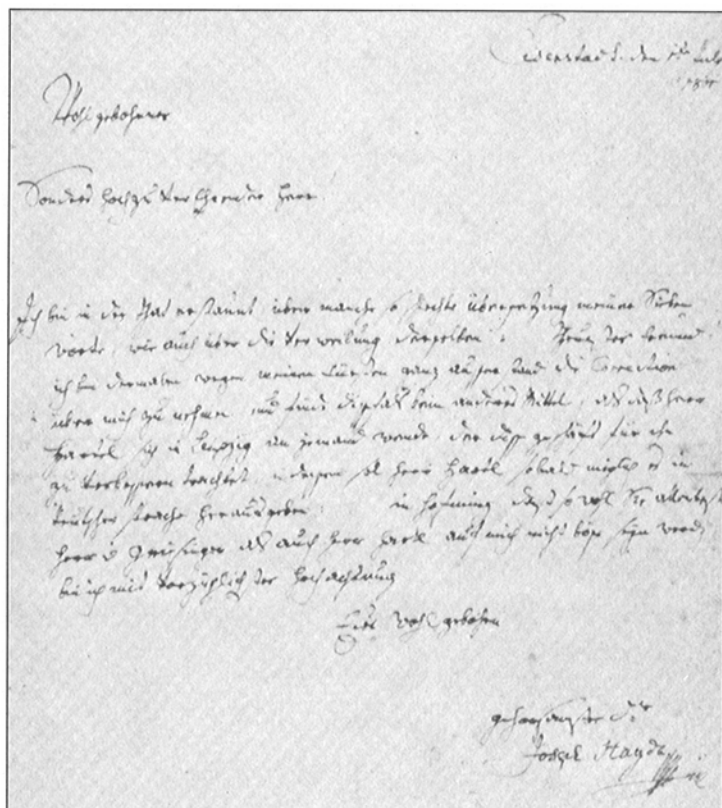 Eisenstadt den 1ten July
Wohl gebohrner
Sonders Hoch zu Verehrender Herr
Ich bin in der That erstaunt über manche schlechte übersetzung meiner Sieben
worte, wie auch über die
ich bin dermalen wegen meinen ganz ausser stand die Correction
über mich zu nehmen, und finde dissfals kein anderes Mittel, als dass Herr
Härtl sich in Leipzig an jemand wende, der diss geschäft für ihn
zu verbessern trachtet, Herr Härtl sobald möglich es in
teutscher sprache herausgeben. in Hofnung, dass so wohl Sie
Herr v Griesinger als auch Herr Hartl auf mich nicht böse seyn werde
bin ich mit vorzüglichster Hochachtung
Euer Wohlgebohrn
gehorsamster dr
Joseph Haydn